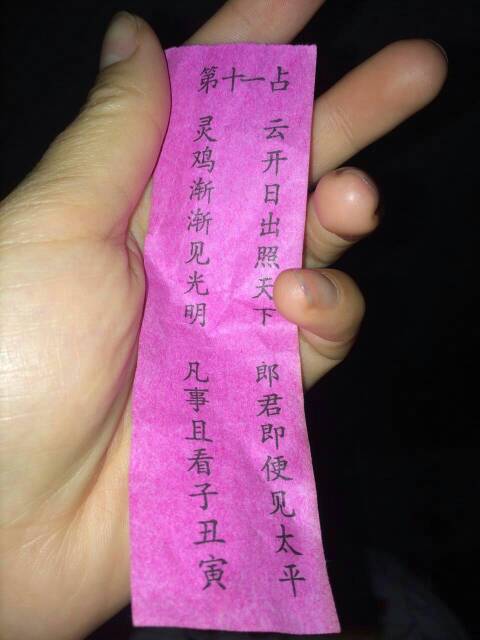 第十一占
灵鸡渐渐见光明 凡事且看子丑寅
云开日出照天下 郎君即便见太平